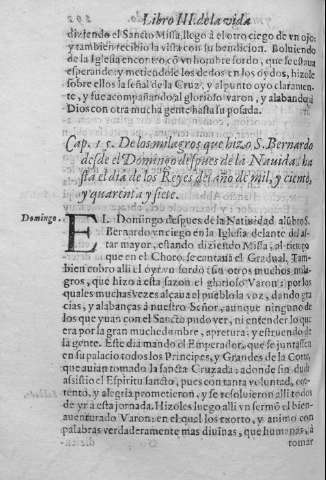 Libro III. de la vida
diziendo el Sancto Missa, llegò â el otro ciego de vn ojo:
y tambien recibio la vista con su bendicion. Boluiendo
de la Iglesia encontro cõ vn hombre sordo, que se estaua
esperando: y metiendole los dedos en los oydos, hizole
sobre ellos la señal de la Cruz, y al punto oyo claramen-
te, y fue acompañando al glorioso varon, y alabando à
Dios con otra mucha gente hasta su posada.
Cap. 15. De los milagros que hizo S. Bernardo
desde el Domingo despues de la Nauidad, ha
sta el dia de los Reyes del año de mil, y ciento,
y quarenta y siete.
Domingo.
EL Domingo despues de la Natiuidad alũbro S.
Bernardo vn ciego en la Iglesia delante del al-
tar mayor, estando diziendo Missa, al tiempo
que en el Choro se cantaua el Gradual. Tam-
bien cobro alli el oydo vn sordo cõ un otros muchos mila-
gros, que hizo à esta sazon el glorioso Varon: por los
quales muchas vezes alçaua el pueblo la voz, dando gra
cias, y alabanças à nuestro Señor, aunque ninguno de
los que yuan con el Sancto pudo ver, ni entender lo que
era por la gran muchedumbre, apretura, y estruendo de
la gente. Este dia mando el Emperador, que se juntassen
en su palacio todos los Principes, y Grandes de la Corte,
que auian tomado la sancta Cruzada: adonde sin duda
assistio el Espiritu sancto, pues con tanta voluntad, con-
tento, y alegria prometieron, y se resoluieron alli todos
de yr à esta jornada. Hizoles luego alli vn sermõ el bien-
auenturado Varon: en el qual los exorto, y animo con
palabras verdaderamente mas diuinas, que humanas, à
tomar